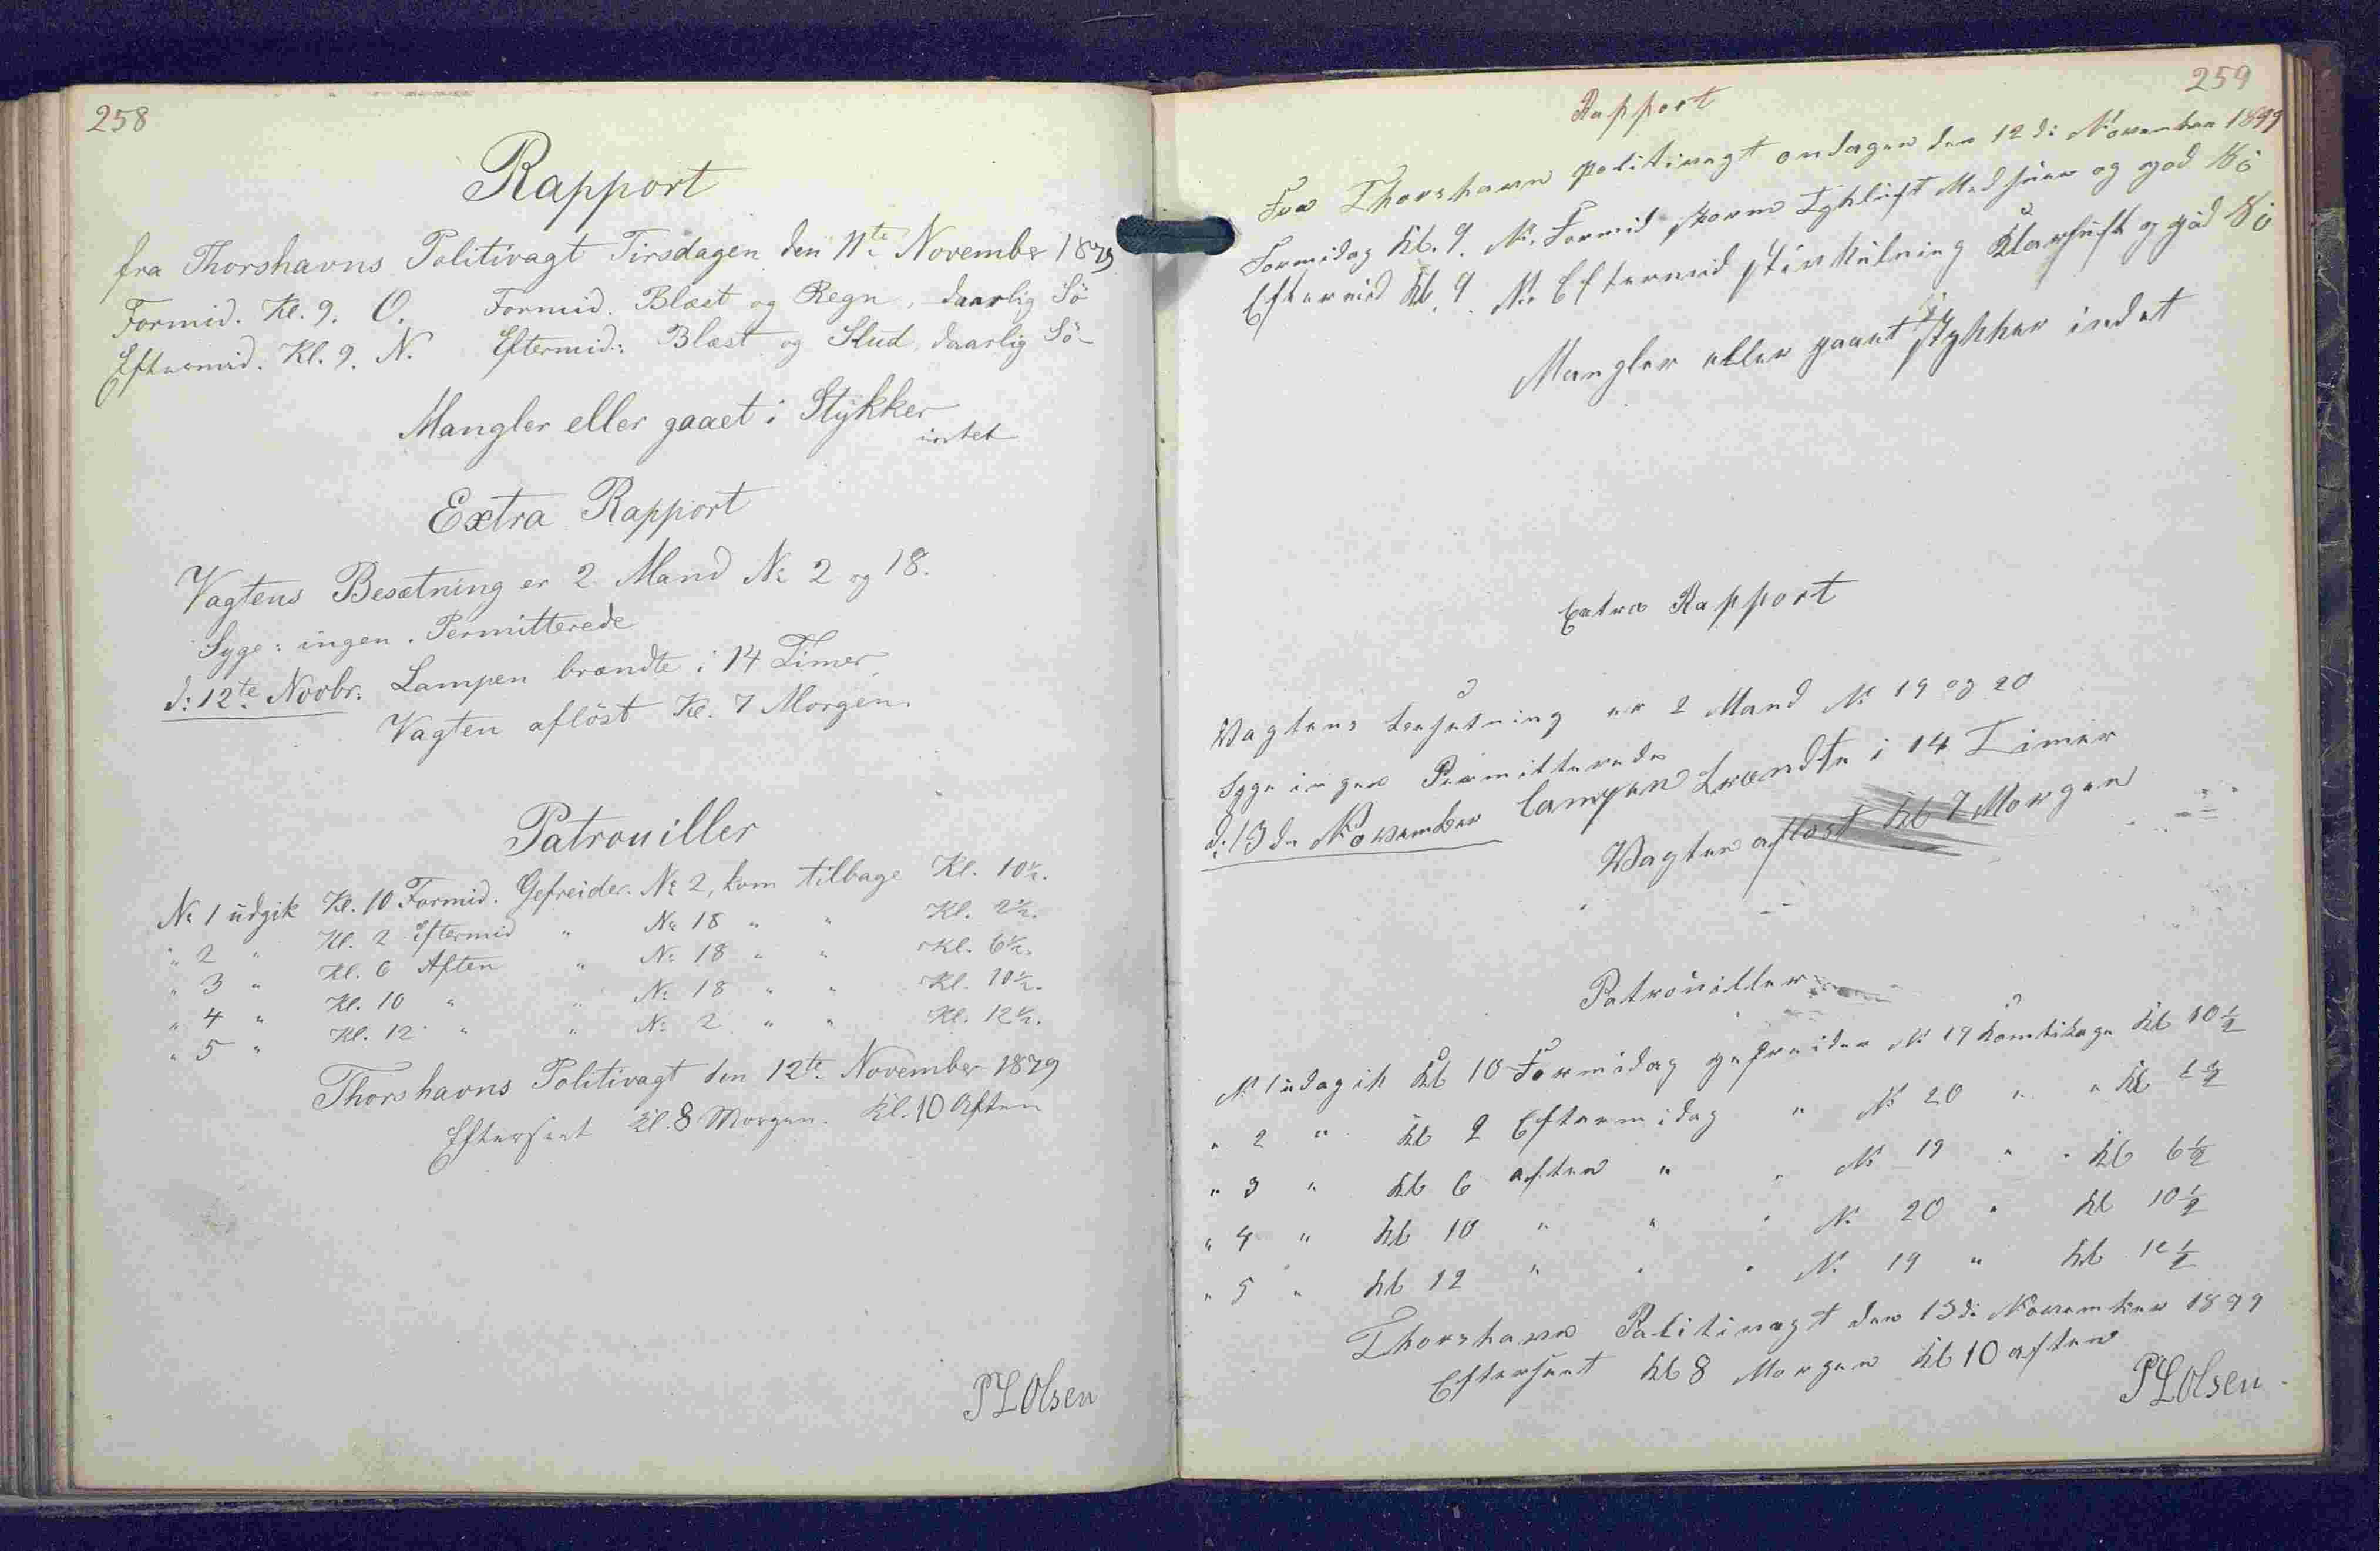 258
Rapport
fra Thorshavns Politivagt Tirsdagen den 11te November 1879
Formid. Kl. 9. O. Formid. Blæst og Regn, daarlig Sö
Eftermid. Kl. 9. N. Eftermid: Blæst og Slud, daarlig Sö
Mangler eller gaaet i Stykker
intet
Extra Rapport
Vagtens Besætning er 2 Mand No 2 og 18.
Syge: ingen. Permitterede
d: 12te Novbr. Lampen brændte i 14 Timer
Vagten aflöst Kl. 7 Morgen.
Patrouiller
No 1 udgik Kl. 10 Formid. Gefreider No 2, kom tilbage Kl. 10½.
" 2 " Kl. 2 Eftermid " No 18 " " Kl. 2½.
" 3 " Kl. 6 Aften " No 18 " " Kl. 6½.
" 4 " Kl. 10 " " No 18 " " Kl. 10½.
" 5 " Kl. 12 " " No 2 " " Kl. 12½.
Thorshavns Politivagt den 12te November 1879
Efterseet Kl. 8 Morgen. Kl. 10 Aften
PLOlsen
259
Rapport
Fra Thorshavn politivagt ondagen den 12 de November 1899
Formidag Kl. 9. N. Formid storm Tykluft Med og god
Eftermid Kl. 9. No Eftermid stivkulning Klarluft og god
Mangler eller gaaet i stykker indet
Extra Rapport
Vagtens besætning er 2 Mand No 19 og 20
Syge ingen Permitterede
d. 13 de November lampen brændte i 14 Timer
Vagten aflöst Kl 7 Morgen
Patrouiller
No 1 udagik Kl 10 Formidag gefreider No 19 Komtibage Kl 10½
" 2 " Kl 2 Eftermidag " No 20 " " Kl 2½
" 3 " Kl 6 aften " " No 19 " " Kl 6½
" 4 " Kl 10 " " " No 20 " Kl 10½
" 5 " Kl 12 " " " No 19 " Kl 12½
Thorshavn Politivagt den 13 de November 1899
Efterseet Kl 8 Morgen Kl 10 aften
PLOlsen